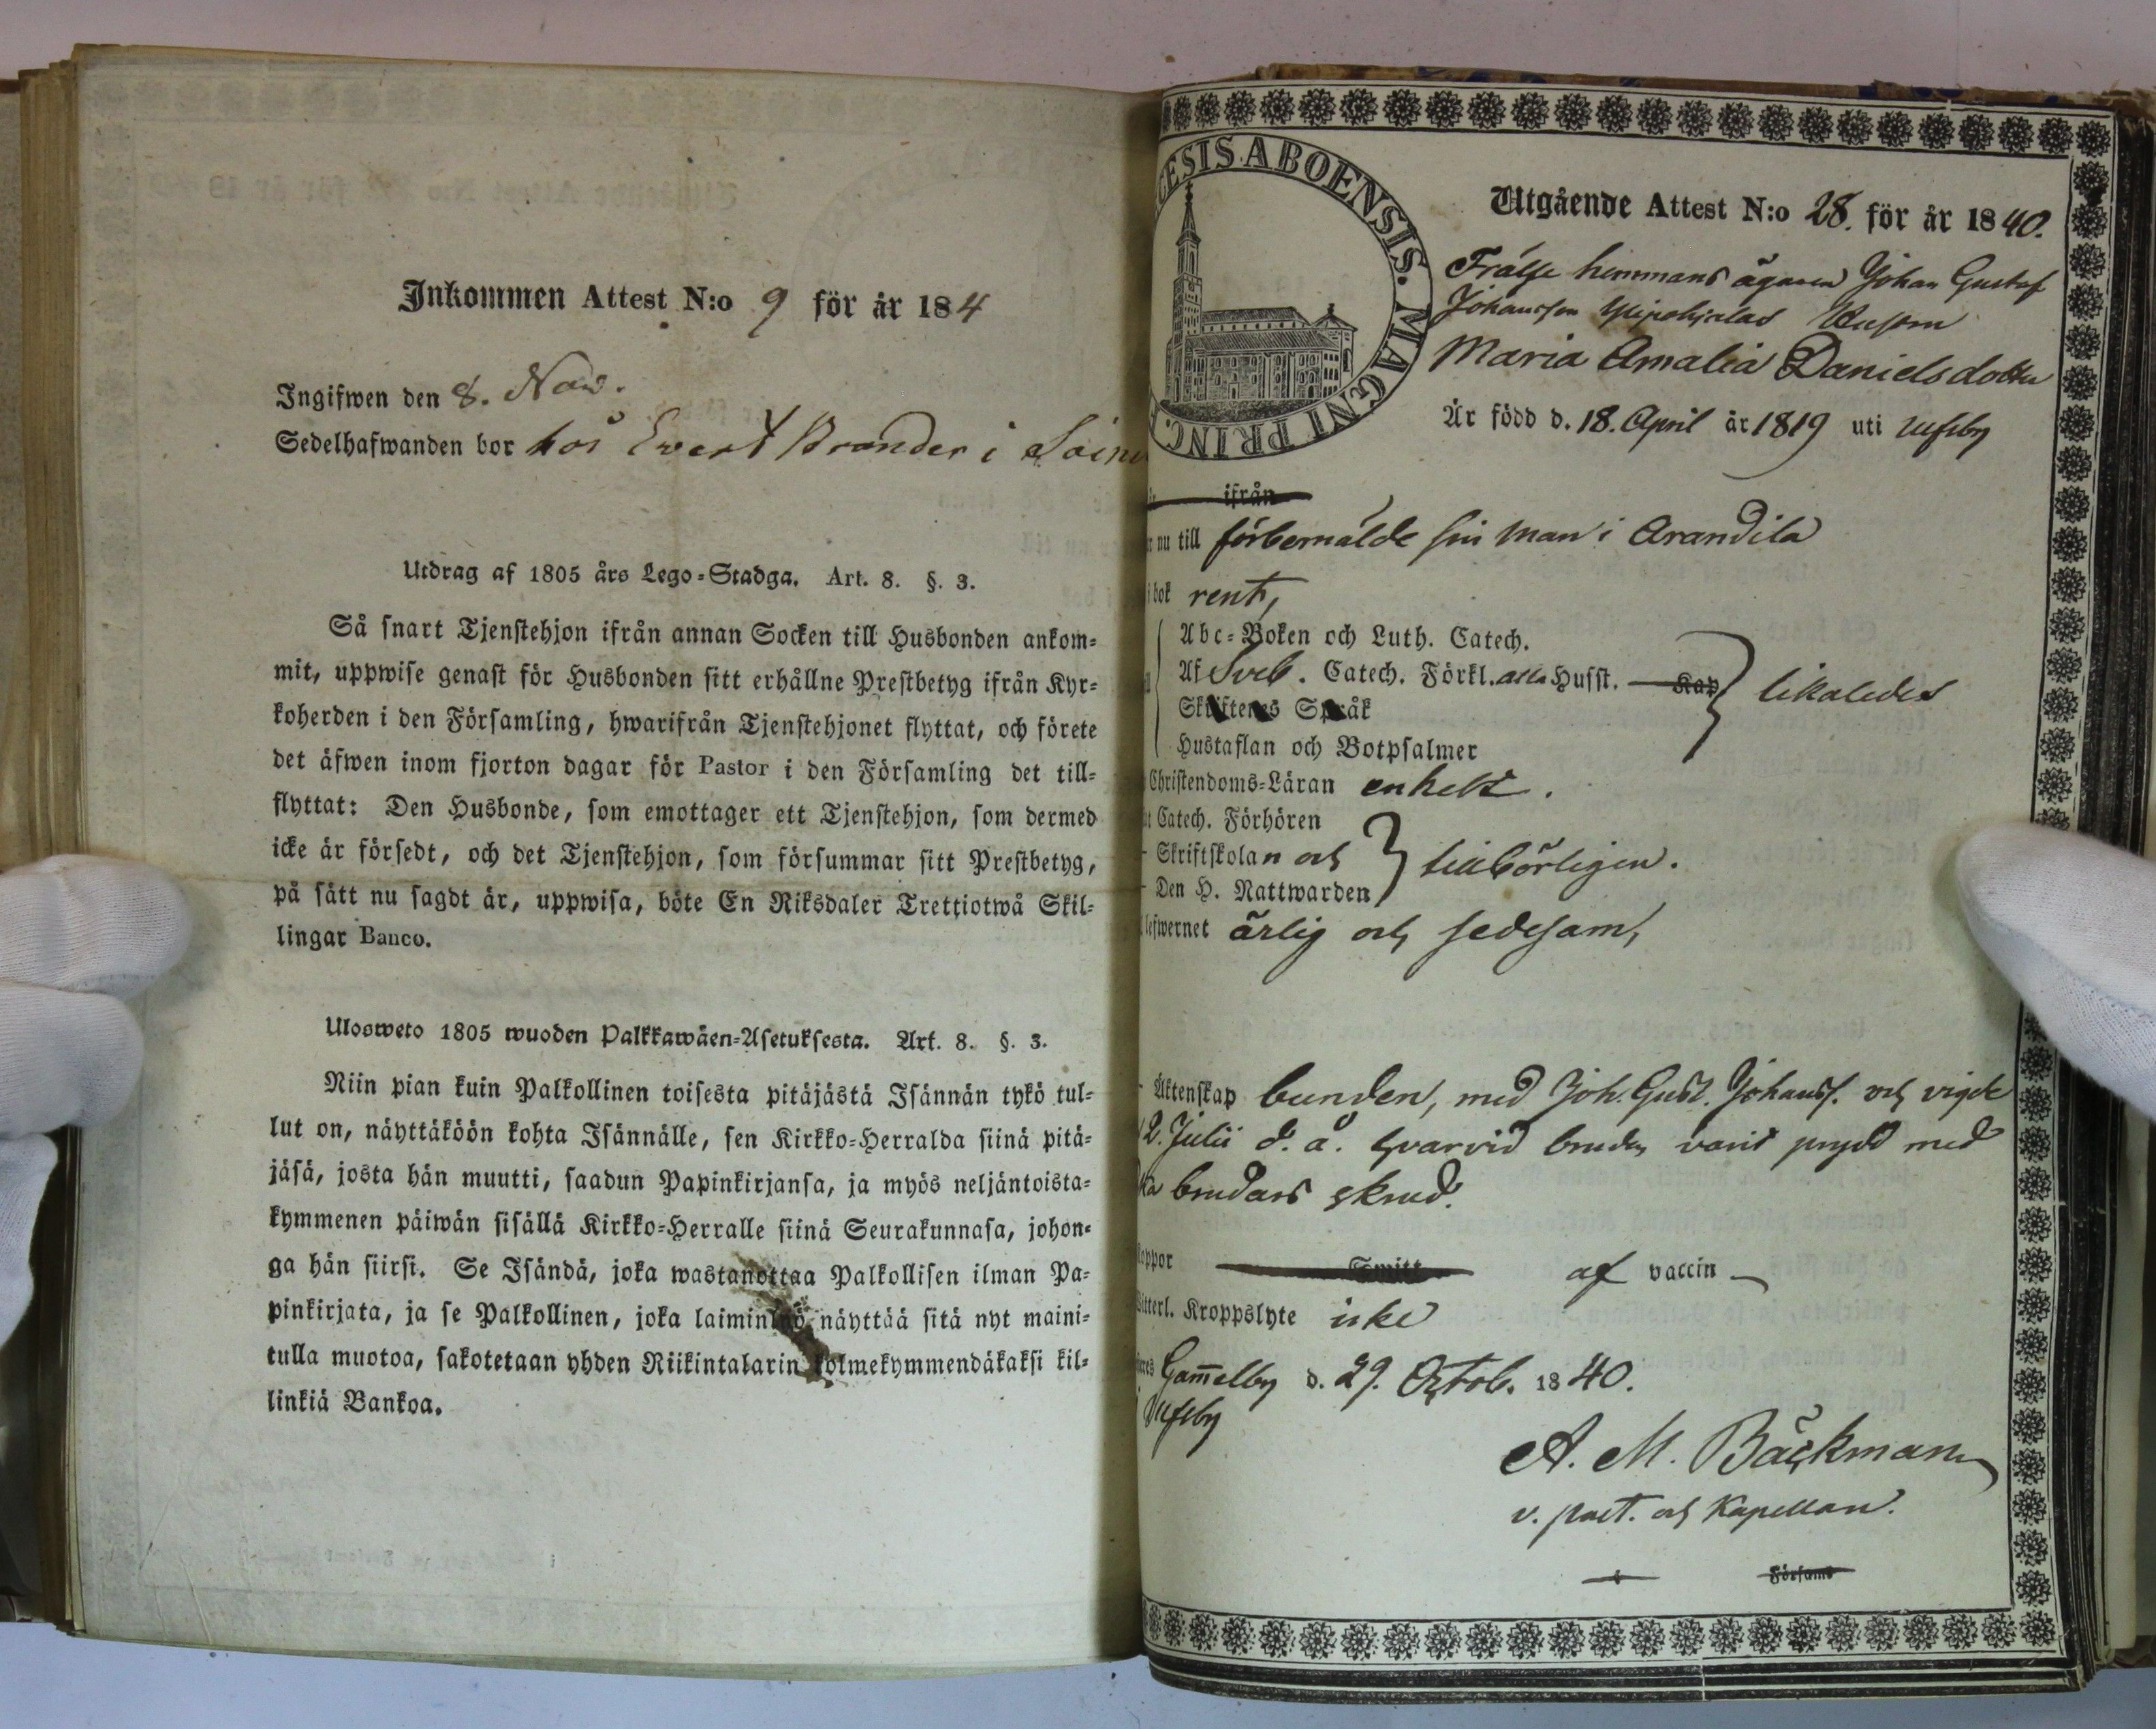 Inkommen Attest N:o 9 för år 184
Ingifwen den 8. Nov.
Sedelhafwanden bor hos Evert Brander i
Utdrag af 1805 års Lego-Stadga. Art. 8. §. 3.
Så snart Tjenstehjon ifrån annan Socken till Husbonden ankom-
mit, uppwise genast för Husbonden sitt erhållne Prestbetyg ifrån Kyr-
koherden i den Församling, hwarifrån Tjenstehjonet flyttat, och förete
det äfwen inom fjorton dagar för Pastor i den Församling det till-
flyttat: Den Husbonde, som emottager ett Tjenstehjon, som dermed
icke är försedt, och det Tjenstehjon, som försummar sitt Prestbetyg,
på sätt nu sagdt är, uppwisa, böte En Riksdaler Trettiotwå Skil-
lingar Banco.
Ulosweto 1805 wuoden Palkkawäen-Asetuksesta. Art. 8. §. 3.
Niin pian kuin Palkollinen toisesta pitäjästä Isännän tykö tul-
lut on, näyttäköön kohta Isännälle, sen Kirkko-Herralda siinä pitä-
jäsä, josta hän muutti, saadun Papinkirjansa, ja myös neljäntoista-
kymmenen päiwän sisällä Kirkko-Herralle siinä Seurakunnasa, johon-
ga hän siirsi. Se Isändä, joka wastanottaa Palkollisen ilman Pa-
pinkirjata, ja se Palkollinen, joka laiminlyö näyttää sitä nyt maini-
tulla muotoa, sakotetaan yhden Riikintalarin kolmekymmendäkaksi kil-
linkiä Bankoa.
CESIS ABOENSIS. MAGNI PRINC.
Utgående Attest N:o 28. för år 1840.
Frälse hemmans ägaren Johan Gustaf
Johansson Ylipohjalas Hustru
Maria Amalia Danielsdotter
Är född d. 18. April år 1819 uti Ulfsby
ifrån
nu till förbemälde sin man i Arandila
i bok rent,
Abc-Boken och Luth. Catech.
Af Sveb. Catech. Förkl. alla Husst. Kap likaledes
Skriftenes Språk
Hustaflan och Botpsalmer
Christendoms-Läran enkelt.
Catech. Förhören
Skriftskolan och tillbörligen.
Den H. Nattwarden
lefwernet ärlig och sedesam,
Äktenskap bunden, med Joh. Gust. Johanss. och vigde
2. Julii d. å. hvarvid bruden varit prydd med
brudars skrud.
koppor Smitt af vaccin
Witterl. Kroppslyte icke
Gam̄elby d. 29. Octob. 1840.
Ulfsby
A. M. Bäckman
v. past. och Kapellan.
i Församl